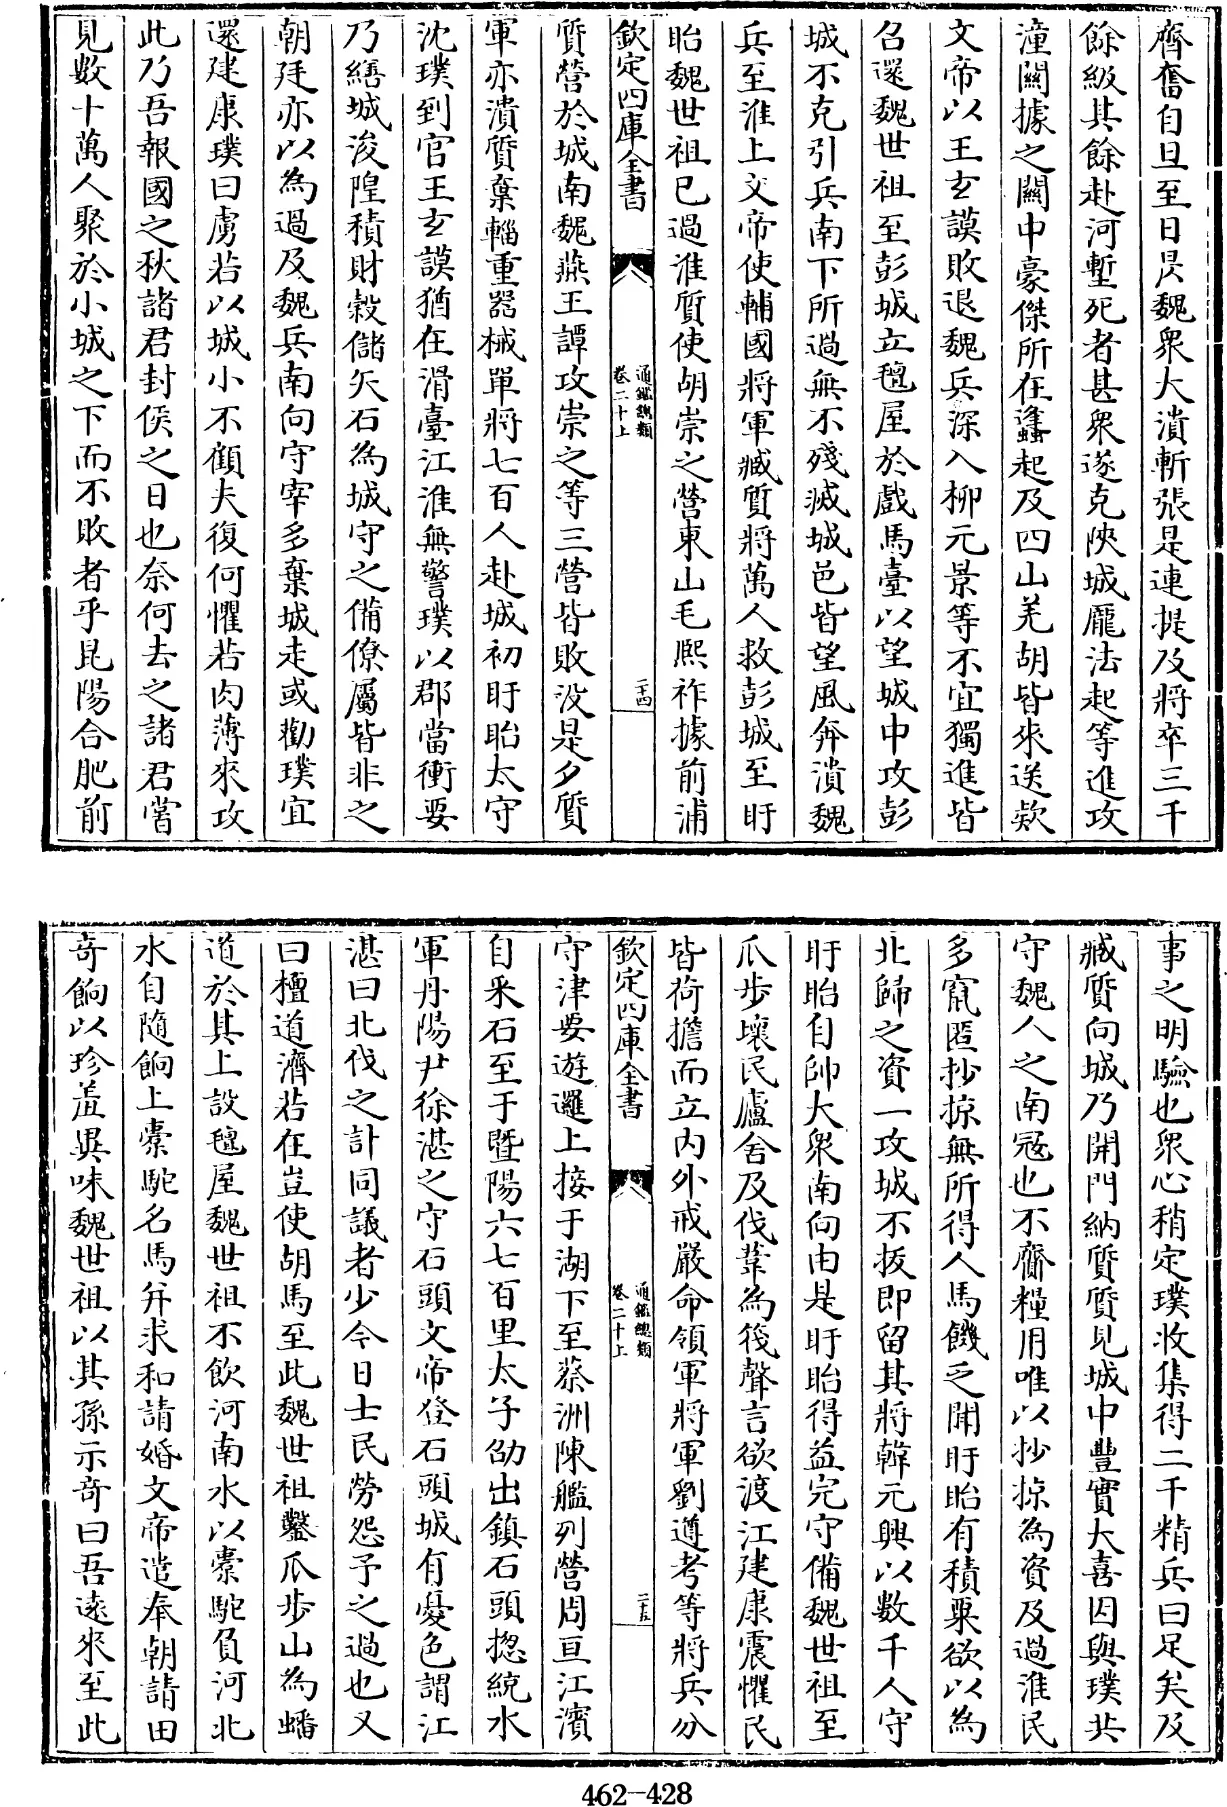 齊奮自旦至日昃魏衆大潰斬張是連提及將卒三千
餘級其餘赴河塹死者甚衆遂克陜城龎法起等進攻
潼關據之關中豪傑所在蠭起及四山羌胡皆來送欵
文帝以王玄謨敗退魏兵深入柳元景等不宜獨進皆
召還魏世祖至彭城立氊屋於戲馬臺以望城中攻彭
城不克引兵南下所過無不殘滅城邑皆望風奔潰魏
兵至淮上文帝使輔國將軍臧質將萬人救彭城至盱
眙魏世祖已過淮質使胡崇之營東山毛熙祚據前浦
欽定四庫全書
通鑑總類
卷二十上
二十四
質營於城南魏燕王譚攻崇之等三營皆敗没是夕質
軍亦潰質棄輜重器械單將七百人赴城初盱眙太守
沈璞到官王玄謨猶在滑臺江淮無警璞以郡當衝要
乃繕城浚隍積財穀儲矢石為城守之備僚屬皆非之
朝廷亦以為過及魏兵南向守宰多棄城走或勸璞宜
還建康璞曰虜若以城小不顧夫復何懼若肉薄來攻
此乃吾報國之秋諸君封侯之日也奈何去之諸君嘗
見數十萬人聚於小城之下而不敗者乎昆陽合肥前
事之明驗也衆心稍定璞收集得二千精兵曰足矣及
臧質向城乃開門納質質見城中豐實大喜因與璞共
守魏人之南冦也不齎糧用唯以抄掠為資及過淮民
多竄匿抄掠無所得人馬饑乏聞盱眙有積粟欲以為
北歸之資一攻城不拔即留其將韓元興以數千人守
盱眙自帥大衆南向由是盱眙得益完守備魏世祖至
瓜步壞民廬舍及伐葦為筏聲言欲渡江建康震懼民
皆荷擔而立内外戒嚴命領軍將軍劉遵考等將兵分
欽定四庫全書
通鑑總類
卷二十上
二十五
守津要遊邏上接于湖下至蔡洲陳艦列營周亘江濱
自采石至于暨陽六七百里太子劭出鎮石頭揔統水
軍丹陽尹徐湛之守石頭文帝登石頭城有憂色謂江
湛曰北伐之計同議者少今日士民勞怨予之過也又
曰檀道濟若在豈使胡馬至此魏世祖鑿瓜步山為蟠
道於其上設氊屋魏世祖不飲河南水以橐駝負河北
水自隨餉上橐駝名馬并求和請婚文帝遣奉朝請田
奇餉以珍羞異味魏世祖以其孫示奇曰吾遠來至此
462-428